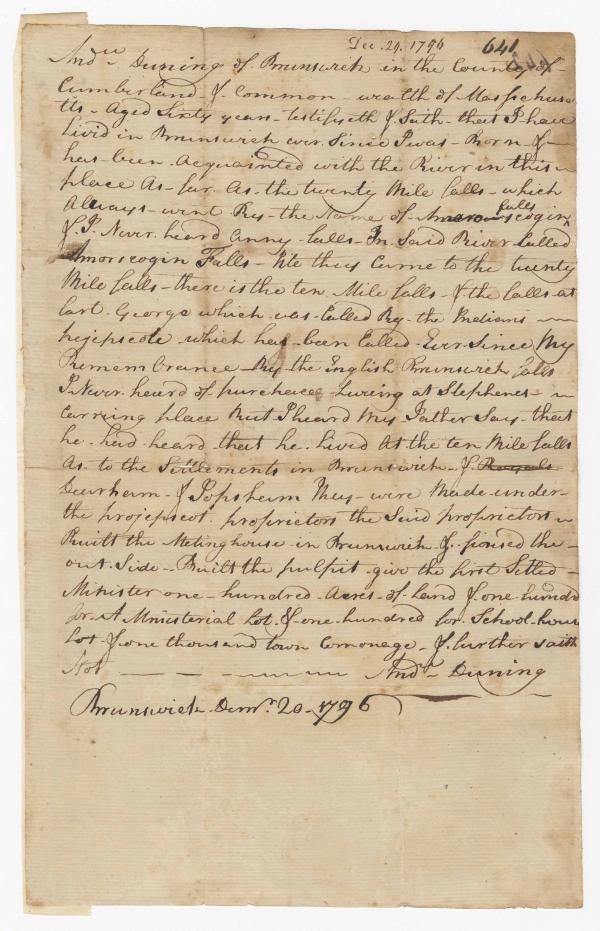 Dec. 29. 1796 641.
Andw Duning of Brunswick in the County of
Cumberland & Common wealth of Massachuse
tts - Aged Sixty years - testifyeth & Saith - that I have
Lived in Brunswick ever Since I was - Born - &
has been Acquainted with the River in this
place As far As the twenty Mile falls - which
Always - went By - the Name of falls
& I Never heard anny falls - In Said River Called
Amorscogin Falls - till they Came to the twenty
Mile falls - there is the ten Mile falls - & the falls at
fort George which was Called By the Indians
pejepscote which has been Called Ever Since My
Remembrance By the English Brunswick falls
I Never heard of purchace Liveing at Stephenes
Carriing place But I heard My Father Say - that
he had heard that he Lived At the ten Mile falls
As to the Settlements in Brunswick - &
Deurham - & Topsheim they wire Made under
the projepscot proprietors the Said proprietors
Built the Metinghouse in Brunswick &. the
out Side - Built the pulpit - give the first Setled
Minister one hundred Acres of Land & one hundrd
for A Ministerial Lot & one hundred for School house
Lot & one thousand town Comonage - & further saith
Not Andw Duning
Brunswick Demr 20 - 1796